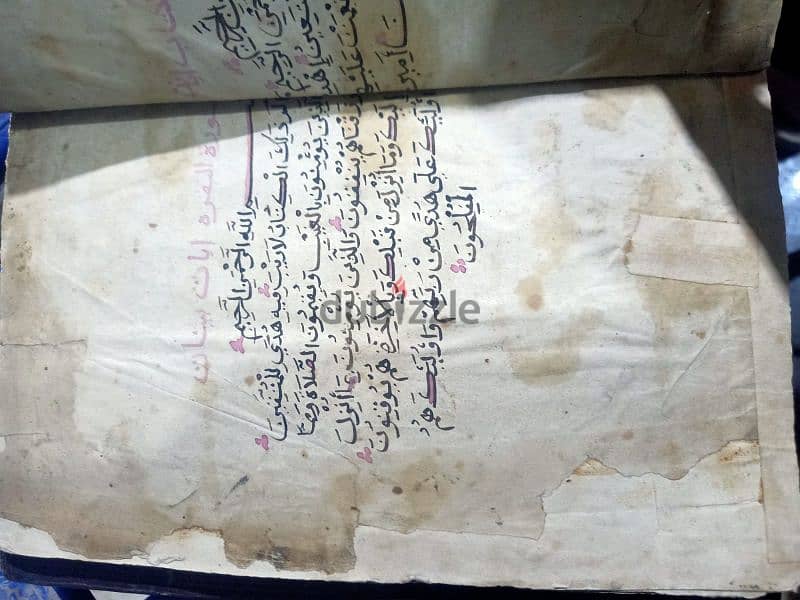 سورة البقرة ايات بينات
بسم الله الرَّحْمٰنِ الرَّحِيمِ
الم ذَلِكَ الْكِتَابُ لَا رَيْبَ فِيهِ هُدًى لِلْمُتَّقِينَ
الَّذِينَ يُؤْمِنُونَ بِالْغَيْبِ وَيُقِيمُونَ الصَّلَاةَ وَمِمَّا
رَزَقْنَاهُمْ يُنْفِقُونَ وَالَّذِينَ يُؤْمِنُونَ بِمَا أُنْزِلَ
إِلَيْكَ وَمَا أُنْزِلَ مِنْ قَبْلِكَ وَبِالْآخِرَةِ هُمْ يُوقِنُونَ
أُولَئِكَ عَلَى هُدًى مِنْ رَبِّهِمْ وَأُولَئِكَ هُمُ
الْمُفْلِحُونَ
dubizzle